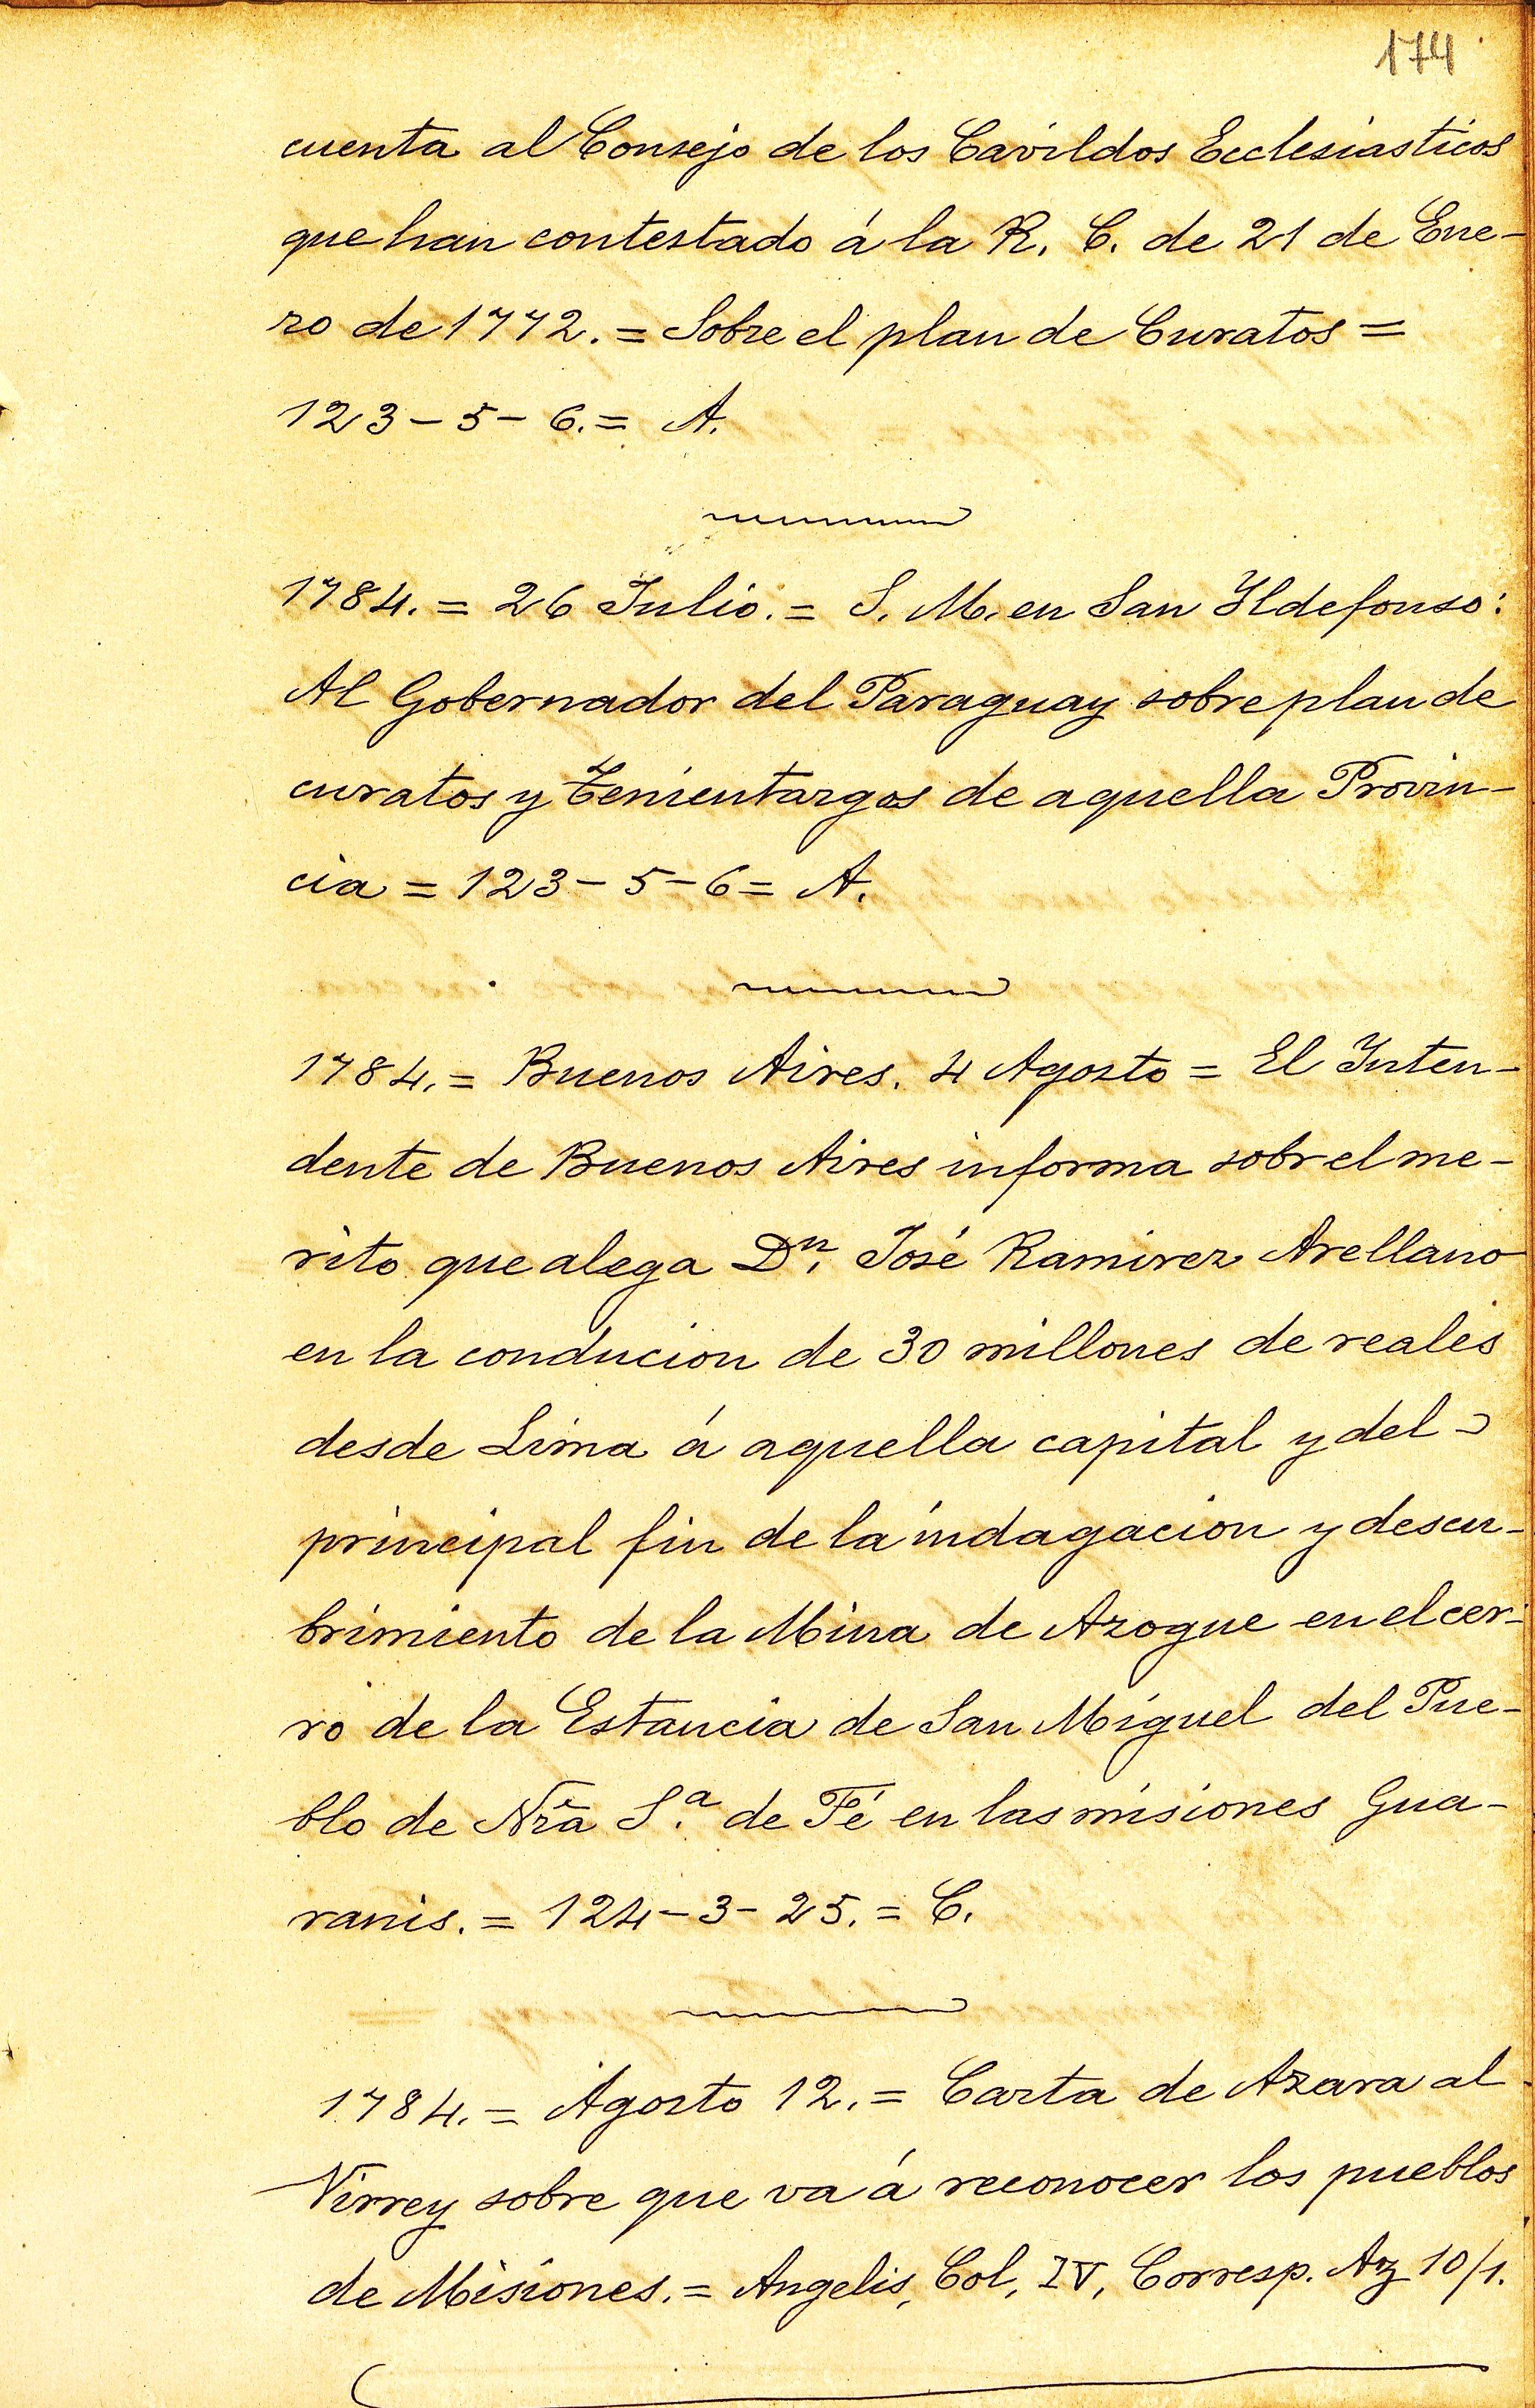 174
cuenta al Consejo de los Cavildos Ecclesiasticos
que han contestado á la R. C. de 21 de Ene-
ro de 1772. = Sobre el plan de Curatos =
123 - 5 - 6. = A.
1784. = 26 Julio. = S. M. en San Yldefonso:
Al Gobernador del Paraguay sobre plan de
curatos y Tenientazgos de aquella Provin-
cia = 123 - 5 - 6 = A.
1784. = Buenos Aires. 4 Agosto = El Inten-
dente de Buenos Aires informa sobr el me-
rito que alega Dn. José Ramirez Arellano
en la conducion de 30 millones de reales
desde Lima á aquella capital y del
principal fin de la indagacion y descu-
brimiento de la Mina de Azogue en el cer-
ro de la Estancia de San Miguel del Pue-
blo de Nra Sa. de Fé en las misiones Gua-
ranis. = 124 - 3 - 25. = C.
1784. = Agosto 12. = Carta de Azara al
Virrey sobre que va á reconocer los pueblos
de Misiones. = Angelis, Col, IV, Corresp. Az 10/1.